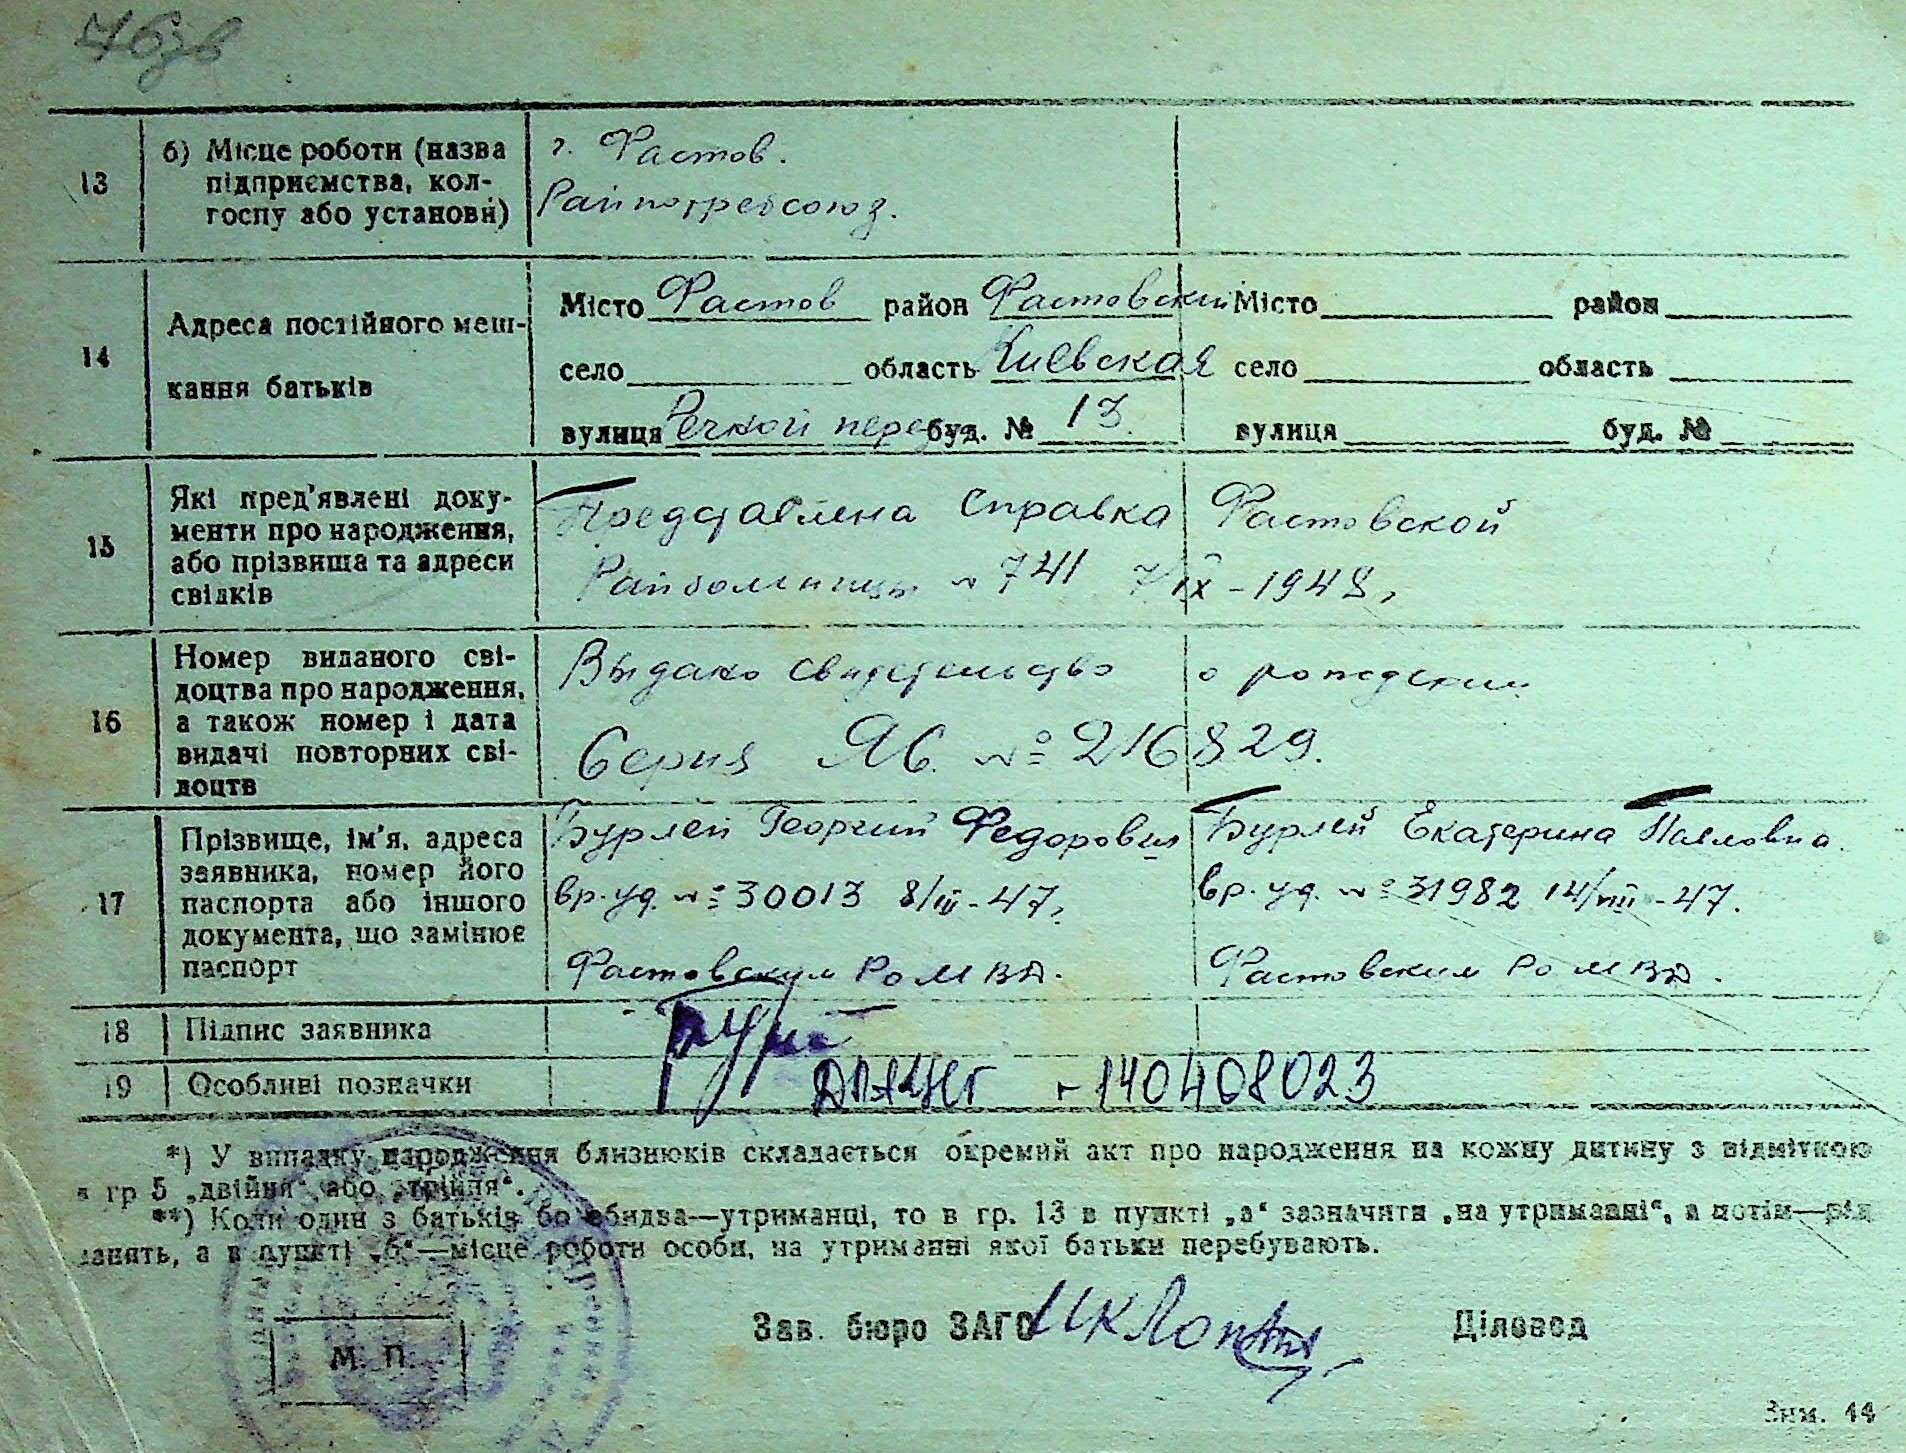 76зв
13
б) Місце роботи (назва
підприємства, кол-
госпу або установи)
г. Фастов.
Райпотребсоюз.
14
Адреса постійного меш-
кання батьків
Місто Фастов район Фастовский Місто район
село область Киевская село область
вулиця Речной буд. № 13. вулиця буд. №
15
Які пред'явлені доку-
менти про народження,
або прізвища та адреси
свідків
Представлена Справка Фастовской
Райбольницы № 741 7/IX-1948,
16
Номер виданого сві-
доцтва про народження,
а також номер і дата
видачі повторних сві-
доцтв
Выдано свидетельство о рождении
Серия ЯБ. № 216829.
17
Прізвище, ім'я, адреса
заявника, номер його
паспорта або іншого
документа, що замінює
паспорт
Бурлей Георгий Федорович
вр. уд. № 30013 8/III-47,
Фастовским РО МВД.
Бурлей Екатерина Павловна.
вр. уд. № 31982 14/VIII-47.
Фастовским РО МВД.
18 Підпис заявника
19 Особливі позначки
140408023
*) У випадку народження близнюків складається окремий акт про народження на кожну дитину з відміткою
в гр 5 „двійня“ або „трійня“.
**) Коли один з батьків бо обидва—утриманці, то в гр. 13 в пункті „а“ зазначити „на утриманні“, а потім—рід
занять, а в пункті „б“—місце роботи особи, на утриманні якої батьки перебувають.
М. П.
Зав. бюро ЗАГС
Діловод
Зам. 44